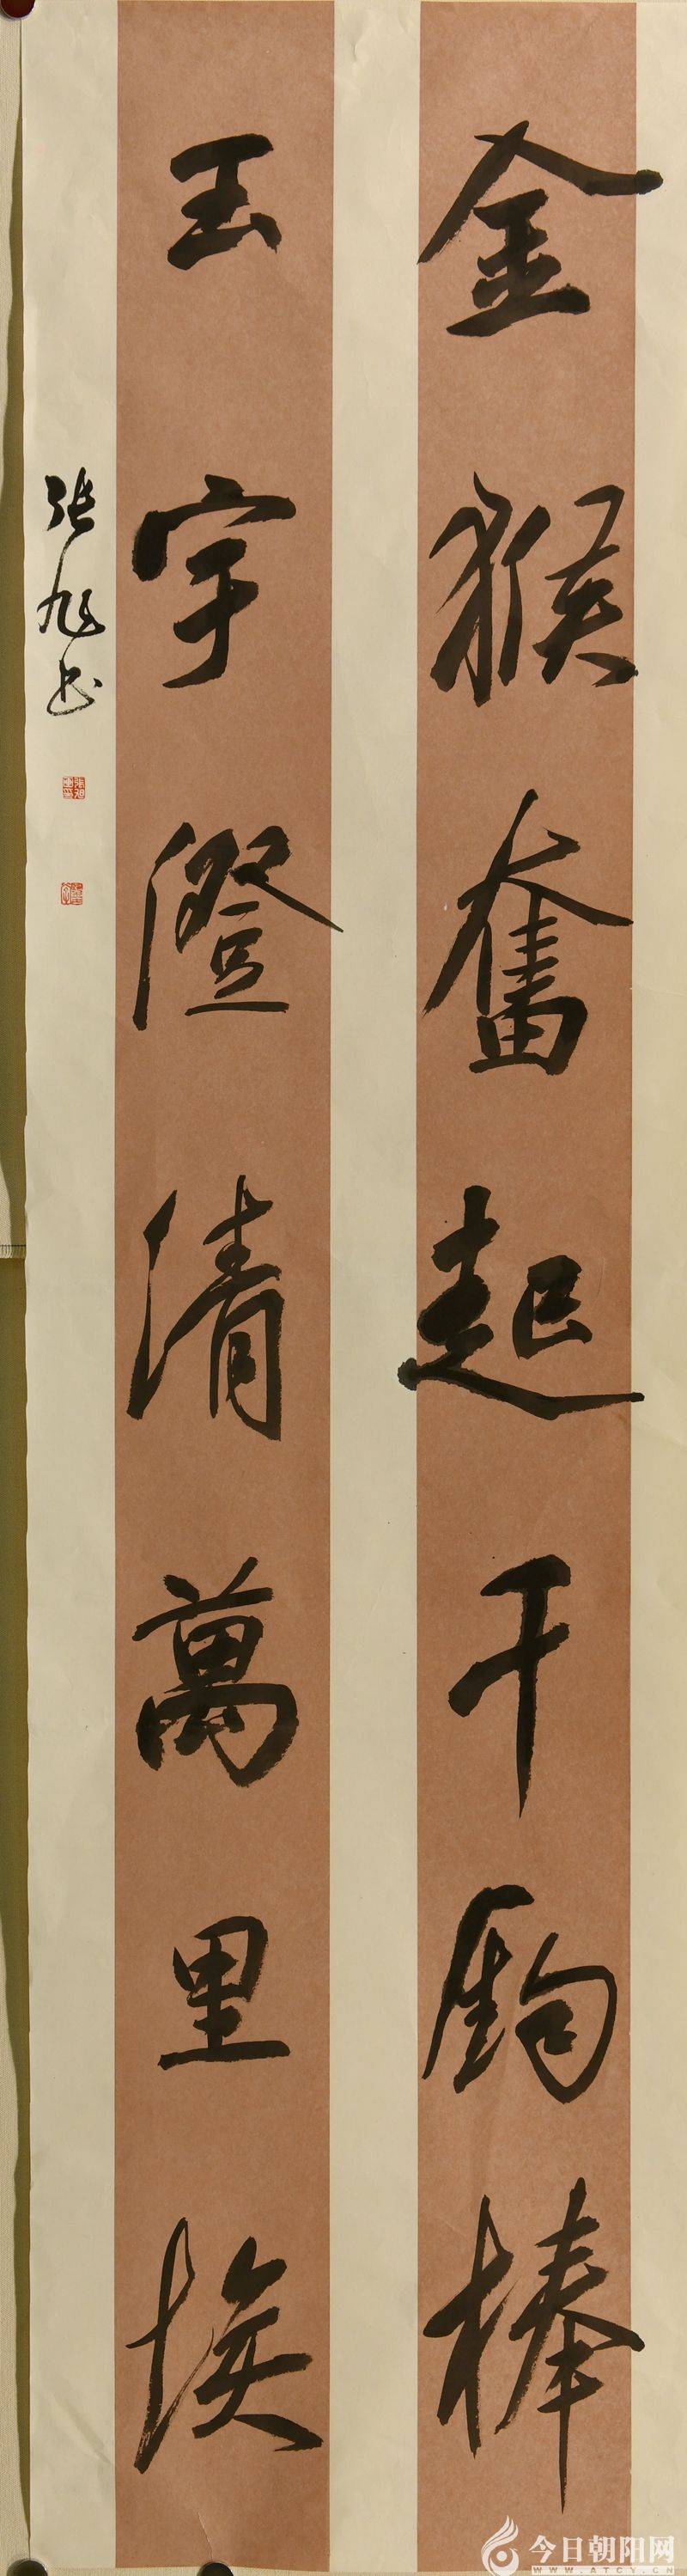 金猴奮起千鈞棒
玉宇澄清萬里埃
张旭书
今日朝阳网
WWW.ATCY.CN